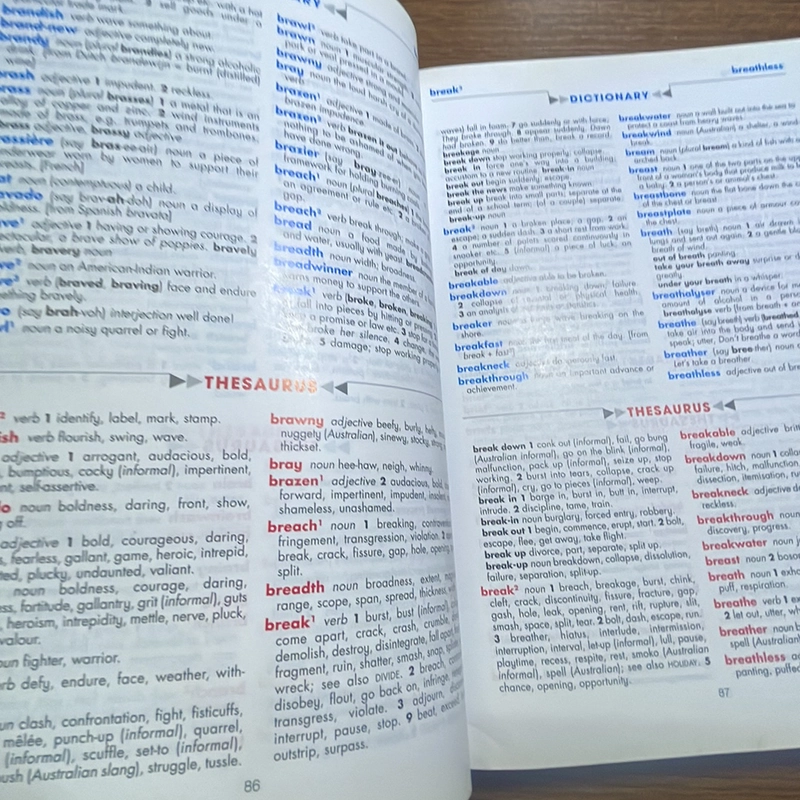 brandish verb wave something about
brand-new adjective completely new.
brandy noun (plural brandies) a strong alcoholic
[from Dutch brandewijn = burnt (distilled)
adjective 1 impudent. 2 reckless.
noun (plural brasses) 1 a metal that is an
alloy of copper and zinc. 2 wind instruments
made of brass, e.g. trumpets and trombones.
brass adjective, brassy adjective
(say bras-ee-air) noun a piece of
underwear worn by women to support their
[French]
noun (contemptuous) a child.
(say brav-ah-doh) noun a display of
boldness. [from Spanish bravata]
adjective 1 having or showing courage. 2
spectacular, a brave show of poppies. bravely
adverb, bravery noun
noun an American-Indian warrior.
verb (braved, braving) face and endure
something bravely.
(say brah-voh) interjection well done!
noun a noisy quarrel or fight.
THESAURUS
verb 1 identify, label, mark, stamp.
verb flourish, swing, wave.
adjective 1 arrogant, audacious, bold,
bumptious, cocky (informal), impertinent,
self-assertive.
noun boldness, daring, front, show,
off.
adjective 1 bold, courageous, daring,
fearless, gallant, game, heroic, intrepid,
plucky, undaunted, valiant.
noun boldness, courage, daring,
fortitude, gallantry, grit (informal), guts
heroism, intrepidity, mettle, nerve, pluck,
valour.
noun fighter, warrior.
verb defy, endure, face, weather, with-
noun clash, confrontation, fight, fisticuffs,
mêlée, punch-up (informal), quarrel,
(informal), scuffle, set-to (informal),
(Australian slang), struggle, tussle.
brawl² verb take part in a
brawn noun 1 muscular
pork or veal pressed in a mould
brawny adjective strong and
bray noun the loud harsh cry of a
verb
brazen¹ adjective 1 made of
brazen impudence.
brazen² verb brazen it out
nothing to be ashamed of when
have done wrong.
brazier (say bray-zee-er)
framework for holding burning
breach¹ noun (plural breaches)
an agreement or rule etc. 2
gap.
breach² verb break through; make
bread noun a food made by
and water, usually with yeast
breadth noun width; broadness.
breadwinner noun the member of a
earns money to support the others.
break¹ verb (broke, broken, breaking)
fall into pieces by hitting or
a promise or law etc. 3 stop for a
broke her silence. 4 change
5 damage; stop working properly
brawny adjective beefy, burly, hefty,
nuggety (Australian), sinewy, stocky, strong
thickset.
bray noun hee-haw, neigh, whinny.
brazen¹ adjective 2 audacious, bold,
forward, impertinent, impudent, insolent
shameless, unashamed.
breach¹ noun 1 breaking,
fringement, transgression, violation. 2
break, crack, fissure, gap, hole, opening
split.
breadth noun broadness, extent,
range, scope, span, spread, thickness,
break¹ verb 1 burst, bust (informal),
come apart, crack, crash, crumble,
demolish, destroy, disintegrate, fall apart,
fragment, ruin, shatter, smash, snap,
wreck; see also DIVIDE. 2 breach,
disobey, flout, go back on, infringe,
transgress, violate. 3 adjourn,
interrupt, pause, stop. 9 beat, exceed,
outstrip, surpass.
86
break¹
breathless
DICTIONARY
waves) fall in foam. 7 go suddenly or with force;
They broke through. 8 appear suddenly. Dawn
had broken. 9 do better than, break a record.
breakage noun
break down stop working properly; collapse.
break in force one's way into a building;
accustom to a new routine. break-in noun
break out begin suddenly; escape.
break the news make something known.
break up break into small parts; separate at the
end of a school term; (of a couple) separate.
break-up noun
break² noun 1 a broken place; a gap. 2 an
escape; a sudden dash. 3 a short rest from work.
4 a number of points scored continuously in
snooker etc. 5 (informal) a piece of luck; an
opportunity.
break of day dawn.
breakable adjective able to be broken.
breakdown noun 1 breaking down; failure.
2 collapse of mental or physical health.
3 an analysis of accounts or statistics.
breaker noun a wave breaking on the
shore.
breakfast noun the first meal of the day. [from
break + fast²]
breakneck adjective dangerously fast.
breakthrough noun an important advance or
achievement.
breakwater noun a wall built out into the sea to
protect a coast from heavy waves.
breakwind noun (Australian) a shelter, a wind-
break.
bream noun (plural bream) a kind of fish with an
arched back.
breast noun 1 one of the two parts on the upper
front of a woman's body that produce milk to
a baby. 2 a person's or animal's chest.
breastbone noun the flat bone down the
of the chest or breast.
breastplate noun a piece of armour covering
the chest.
breath (say breth) noun 1 air drawn
lungs and sent out again. 2 a gentle blowing
breath of wind.
out of breath panting.
take your breath away surprise or
greatly.
under your breath in a whisper.
breathalyser noun a device for measuring
amount of alcohol in a person's
breathalyse verb [from breath +
breathe (say breeth) verb (breathed,
take air into the body and send
speak; utter, Don't breathe a word
breather (say bree-ther) noun
Let's take a breather.
breathless adjective out of breath
THESAURUS
break down 1 conk out (informal), fail, go bung
(Australian informal), go on the blink (informal),
malfunction, pack up (informal), seize up, stop
working. 2 burst into tears, collapse, crack up
(informal), cry, go to pieces (informal), weep.
break in 1 barge in, burst in, butt in, interrupt,
intrude. 2 discipline, tame, train.
break-in noun burglary, forced entry, robbery.
break out 1 begin, commence, erupt, start. 2 bolt,
escape, flee, get away, take flight.
break up divorce, part, separate, split up.
break-up noun breakdown, collapse, dissolution,
failure, separation, split-up.
break² noun 1 breach, breakage, burst, chink,
cleft, crack, discontinuity, fissure, fracture, gap,
gash, hole, leak, opening, rent, rift, rupture, slit,
smash, space, split, tear. 2 bolt, dash, escape, run.
3 breather, hiatus, interlude, intermission,
interruption, interval, let-up (informal), lull, pause,
playtime, recess, respite, rest, smoko (Australian
informal), spell (Australian); see also HOLIDAY. 5
chance, opening, opportunity.
breakable adjective
fragile, weak.
breakdown noun 1
failure, hitch, malfunction
dissection, itemisation,
breakneck adjective
reckless.
breakthrough noun
discovery, progress.
breakwater noun
breast noun 2
breath noun 1
puff, respiration.
breathe verb 1
2 let out, utter,
breather noun
spell (Australian)
breathless
panting,
87